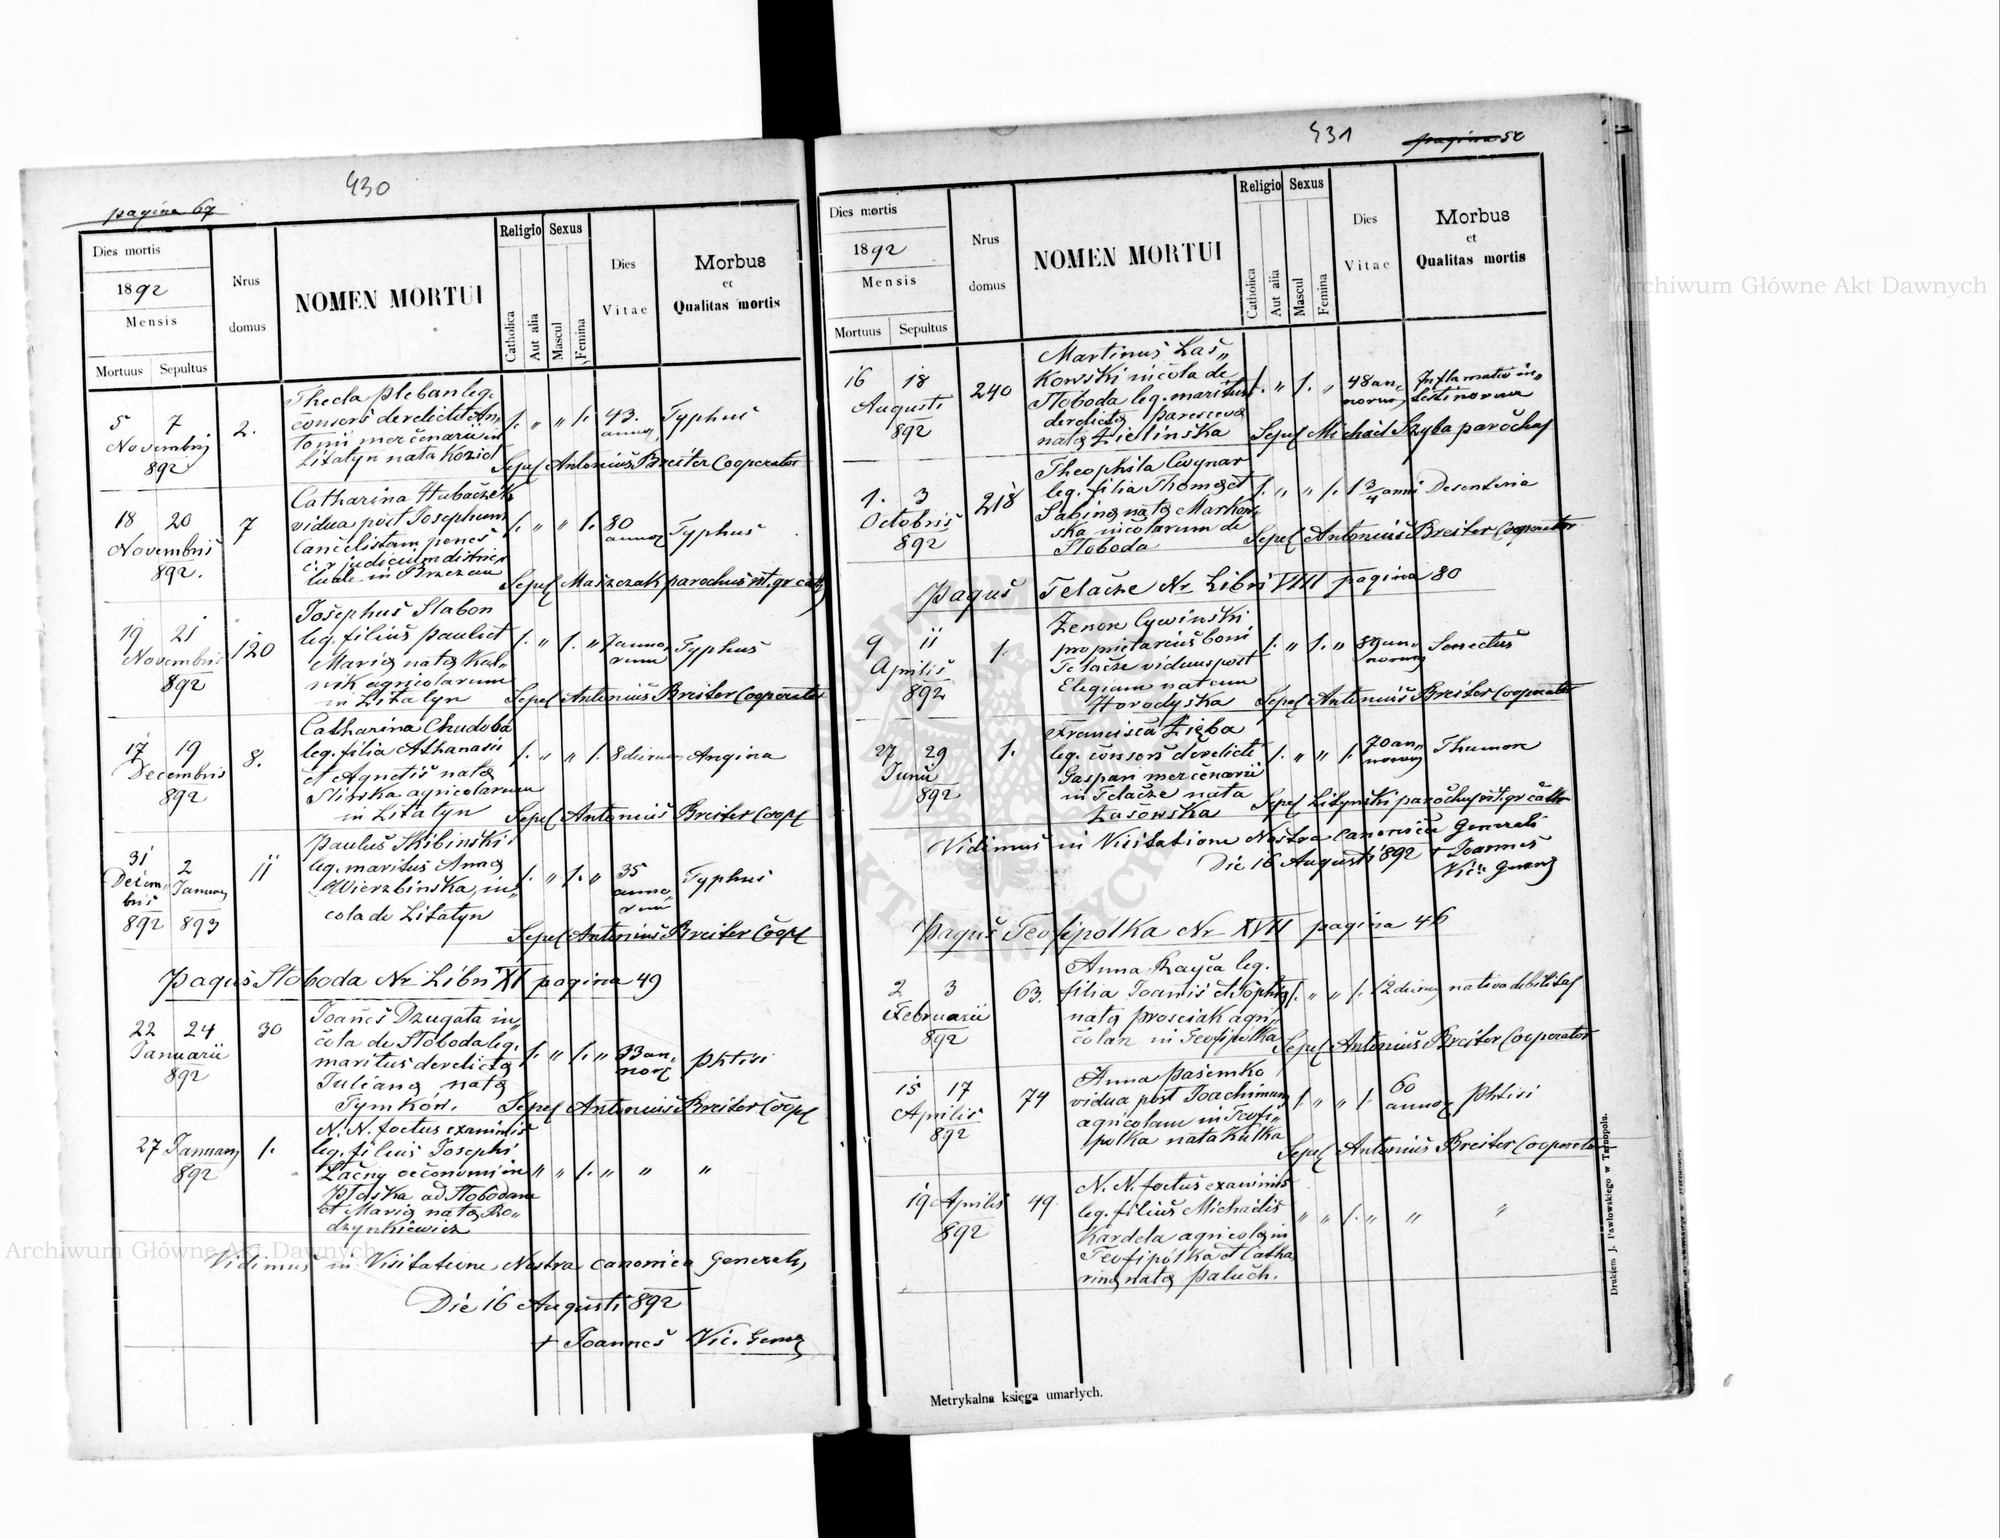 430
pagina 67
Dies mortis
1892
Mensis
Mortuus Sepultus
Nrus
domus
NOMEN MORTUI
Religio
Catholica
Aut alia
Sexus
Mascul
Femina
Dies
Vitae
Morbus
et
Qualitas mortis
5 7
Novembris
892
2.
Thecla Pleban leg.
consors derelicta An
tonii mercenarii in
Litatyn nata Kozioł
1. " " 1.
43.
annor
Typhus
Sepel Antonius Breiter Cooperator
18 20
Novembris
892.
7
Catharina Hubaczek
vidua post Josephum
Cancelistam penes
c. r. judicium district
tuale in Brzezan
1. " " 1.
80
annor
Typhus
Sepel Maszczak parochus rit. gr. cath
19 21
Novembris
892
120
Josephus Slabon
leg. filius Pauli et
Maria nata Kal„
nik agricolarum
in Litatyn
1. " 1. "
7 anno
rum
Typhus
Sepel Antonius Breiter Cooperator
17 19
Decembris
892
8.
Catharina Chudoba
leg. filia Athanasii
et Agnetis nata
Sliwka agricolarum
in Litatyn
1. " " 1.
8 dierum
Angina
Sepel Antonius Breiter Coopl
31 2
Decem„ Januarj
bris
892 893
11
Paulus Skibinski
leg. maritus Anna
Wierzbinska, in„
cola de Litatyn
1. " 1. "
35
anno
rum
Typhus
Sepel Antonius Breiter Coopl
Pagus Sloboda Nr Libri XI pagina 49
22 24
Januarii
892
30
Joanes Dzugala in
cola de Sloboda leg.
maritus derelicta
Juliana nata
Tymków.
1. " 1. "
33 an„
nor
Phtisi
Sepel Antonius Breiter Coopl
27 Januarj
892
1.
N. N. foetus exanimis
leg. filius Josephi
Łačny oeconomi in
ad Slobodam
et Maria nata Ro„
dzynkiewicz
" " 1. " " "
Vidimus in Visitatione Nostra canonica Generali,
Die 16 Augusti 892
+ Joannes Vic. Gener
431
pagina 50
Dies mortis
1892
Mensis
Mortuus Sepultus
Nrus
domus
NOMEN MORTUI
Religio
Catholica
Aut alia
Sexus
Mascul
Femina
Dies
Vitae
Morbus
et
Qualitas mortis
16 18
Augusti
892
240
Martinus Las„
kowski incola de
Sloboda leg. maritus
derelicta Parasceva
nata Zielinska
1. " 1. "
48 an„
norum
Inflamatio in„
testinorum
Sepel Michael Szyba parochus
1. 3
Octobris
892
218
Theophila Cwynar
leg. filia Thoma et
Sabina nata Markow
ska incolarum de
Sloboda
1. " " 1.
1 3/4 anni
Desenteria
Sepel Antonius Breiter Cooperator
Pagus Telacze Nr Libri VIII pagina 80
9 11
Aprilis
892
1.
Zenon Cywinski
proprietarius boni
Telacze viduus post
Elegiam natam
Horodyska
1. " 1. "
89 an„
norum
Senectus
Sepel Antonius Breiter Cooperator
27 29
Junii
892
1.
Francisca Zięba
leg. consors derelicti
Gaspari mercenarii
in Telacze nata
Łasowska
1. " " 1.
70 an„
norum
Thumor
Sepel Litynski parochus rit. gr. cath
Vidimus in Visitatione Nostra canonica Generali
Die 16 Augusti 892 + Joannes
Vic. Generj
Pagus Teofipolka Nr XVII pagina 46
2 3
Februarii
892
63.
Anna Rayca leg.
filia Joanis et Sophia
nata Prosciak agri„
colar in Teofipolka
1. " " 1.
12 dierum
nativa debilitas
Sepel Antonius Breiter Cooperator
15 17
Aprilis
892
74
Anna Pasemko
vidua post Joachimum
agricolam in Teofi„
polka nata Kulka
1. " " 1.
60
annor
Phtisi
Sepel Antonius Breiter Cooperator
19 Aprilis
892
49.
N. N. foetus exanimis
leg. filius Michaelis
Kardela agricola in
Teofipolka et Catha
rina nata Paluch.
" " 1. " " "
Metrykalna księga umarłych.
Drukiem J. Pawłowskiego w Tarnopolu.
Archiwum Główne Akt Dawnych
Archiwum Główne Akt Dawnych